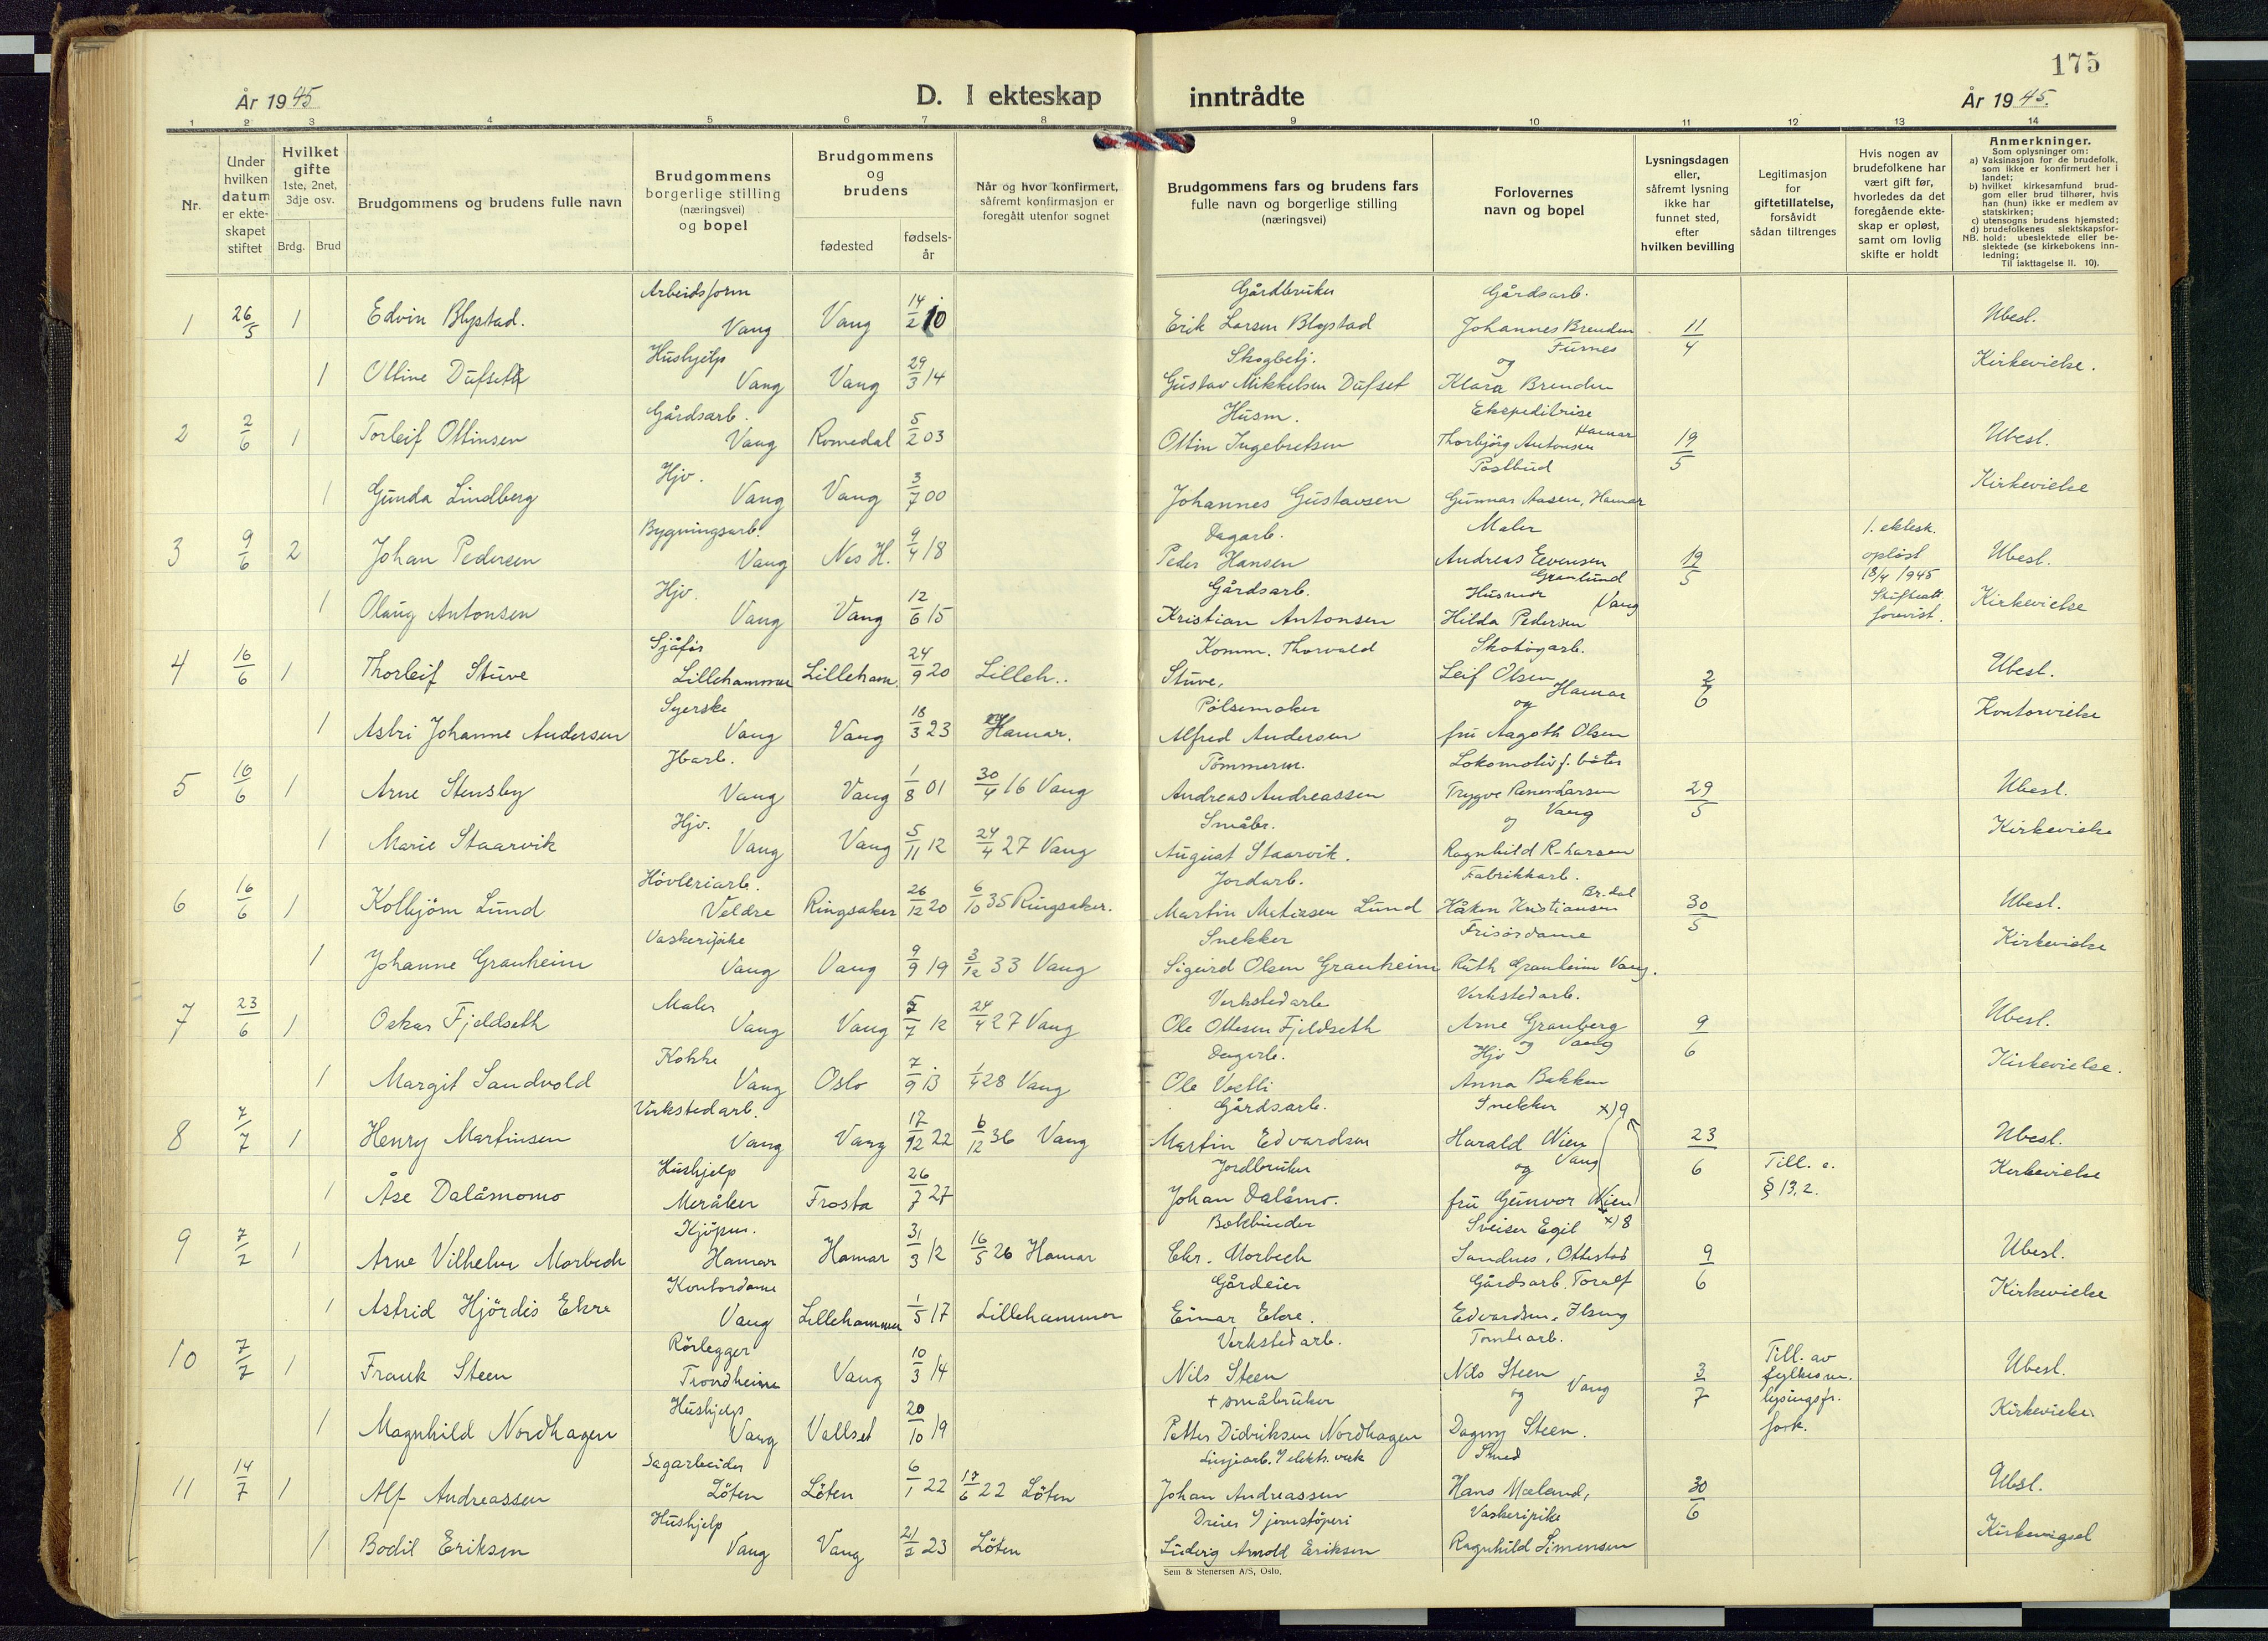 175
År 1945
D. I ekteskap
inntrådte
År 1945.
1 2 3 4 5 6 7 8 9 10 11 12 13 14
Nr.
Under hvilken datum er ekte-skapet stiftet
Hvilket gifte 1ste, 2net, 3dje osv.
Brdg. Brud
Brudgommens og brudens fulle navn
Brudgommens borgerlige stilling (næringsvei) og bopel
Brudgommens og brudens
fødested
fødsels-år
Når og hvor konfirmert, såfremt konfirmasjon er foregått utenfor sognet
Brudgommens fars og brudens fars fulle navn og borgerlige stilling (næringsvei)
Forlovernes navn og bopel
Lysningsdagen eller, såfremt lysning ikke har funnet sted, efter hvilken bevilling
Legitimasjon for giftetillatelse, forsåvidt sådan tiltrenges
Hvis nogen av brudefolkene har vært gift før, hvorledes da det foregående ekte-skap er opløst, samt om lovlig skifte er holdt
Anmerkninger.
Som oplysninger om:
a) Vaksinasjon for de brudefolk, som ikke er konfirmert her i landet;
b) hvilket kirkesamfund brud-gom eller brud tilhører, hvis han (hun) ikke er medlem av statskirken;
c) utensogns brudens hjemsted;
d) brudefolkenes slektskapsfor-hold: ubeslektede eller be-slektede (se kirkebokens inn-ledning;
NB.
Til iakttagelse II. 10).
Arbeidsform Gårdbruker Gårdsarb.
1 26/5 1 Edvin Blystad. Vang Vang 14/2 10 Erik Larsen Blystad Johannes Brenden 11/4 Ubesl.
Hushjelp Skogbetj. og Furnes
1 Olline Dufseth Vang Vang 29/3 14 Gustav Mikkelsen Dufset Klara Brenden Kirkevielse.
Gårdsarb. Husm. Ekspeditrise
2 2/6 1 Torleif Ottinsen Vang Romedal 5/2 03 Ottin Ingebretsen Thorbjørg Antonsen Hamar 19/5 Ubesl.
Hjv. Postbud
1 Gunda Lindberg Vang Vang 3/7 00 Johannes Gustavsen Gunnar Aasen, Hamar Kirkevielse
Bygningsarb. Dagarb. Maler 1. ektesk.
3 9/6 2 Johan Pedersen Vang Nes H. 9/4 18 Peder Hansen Andreas Evensen Granlund 19/5 opløst 18/4 1945 Ubesl.
Hjv. Gårdsarb. Husmor Vang Skifteatt.
1 Olaug Antonsen Vang Vang 12/6 15 Kristian Antonsen Hilda Pedersen forevist. Kirkevielse
Sjåfør Komm. Thorvald Skotøyarb.
4 16/6 1 Thorleif Stuve Lillehammer Lilleham. 24/9 20 Lilleh.. Stuve, Leif Olsen 2/6 Ubesl.
Syerske Pølsemaker og Hamar
1 Astri Johanne Andersen Vang Vang 18/3 23 Hamar. Alfred Andersen fru Aagoth Olsen Kontorvielse
Jbarb. Tømmerm. Lokomotivf. bøter
5 16/6 1 Arne Stensby Vang Vang 1/8 01 30/4 16 Vang Andreas Andreassen Trygve Larsen 29/5 Ubesl.
Hjv. Småbr. og Vang
1 Marie Staarvik Vang Vang 5/11 12 24/4 27 Vang August Staarvik. Ragnhild R-Larsen Kirkevielse
Høvleriarb. Jordarb. Fabrikkarb.
6 16/6 1 Kolbjørn Lund Veldre Ringsaker 26/12 20 6/10 35 Ringsaker. Martin Lund Håkon Kristiansen Br.dal 30/5 Ubesl.
Snekker Frisørdame
1 Johanne Granheim Vang Vang 9/9 19 3/12 33 Vang Sigurd Olsen Granheim Ruth Granheim Vang. Kirkevielse
Maler Verkstedarb Verkstedarb.
7 23/6 1 Oskar Fjeldseth Vang Vang 5/7 12 24/4 27 Vang Ole Ottesen Fjeldseth Arne Granberg 9/6 Ubesl.
Kokke Dagarb. Hjv og Vang
1 Margit Sandvold Vang Oslo 7/9 13 1/4 28 Vang Ole Vestli Anna Bakken Kirkevielse.
Verkstedarb. Gårdsarb. Snekker x) 9
8 7/7 1 Henry Martinsen Vang Vang 17/12 22 6/12 36 Vang Martin Edvardsen Harald Wien 23/6 Ubesl.
Hushjelp Jordbruker og Vang Till. e.
1 Åse Dalåmomo Meråker Frosta 26/7 27 Johan Dalåmo. fru Gunvor Wien § 13.2. Kirkevielse
Kjøpm. Bokbinder Sveiser Egil x) 8
9 7/7 1 Arne Vilhelm Morbech Hamar Hamar 31/3 12 16/5 26 Hamar Chr. Morbech Sandnes, Ottestad 9/6 Ubesl.
Kontordame Gårdeier Gårdsarb. Toralf
1 Astrid Hjørdis Ekre Vang Lillehammer 1/5 17 Lillehammer Einar Ekre. Edvardsen, Ilseng Kirkevielse
Rørlegger Verkstedarb. Tomtearb. Till. av
10 7/7 1 Frank Steen Trondheim Vang 10/3 14 Nils Steen Nils Steen 3/7 fylkesm. Ubesl.
Hushjelp + småbruker og Vang lysingsfr.
1 Magnhild Nordhagen Vang Vallset 20/10 19 Petter Didriksen Nordhagen Dagny Steen. fork. Kirkevielse.
Sagarbeider Linjearb. v/ elektr. verk Smed
11 14/7 1 Alf Andreassen Löten Löten 6/1 22 17/6 22 Löten Johan Andreassen Hans Mæland, 30/6 Ubesl.
Hushjelp Dreier v/ jernstøperi Vaskeripike
1 Bodil Eriksen Vang Vang 21/2 23 Löten Ludvig Arnold Eriksen Ragnhild Simensen Kirkevigsel
Sem & Stenersen A/S, Oslo.